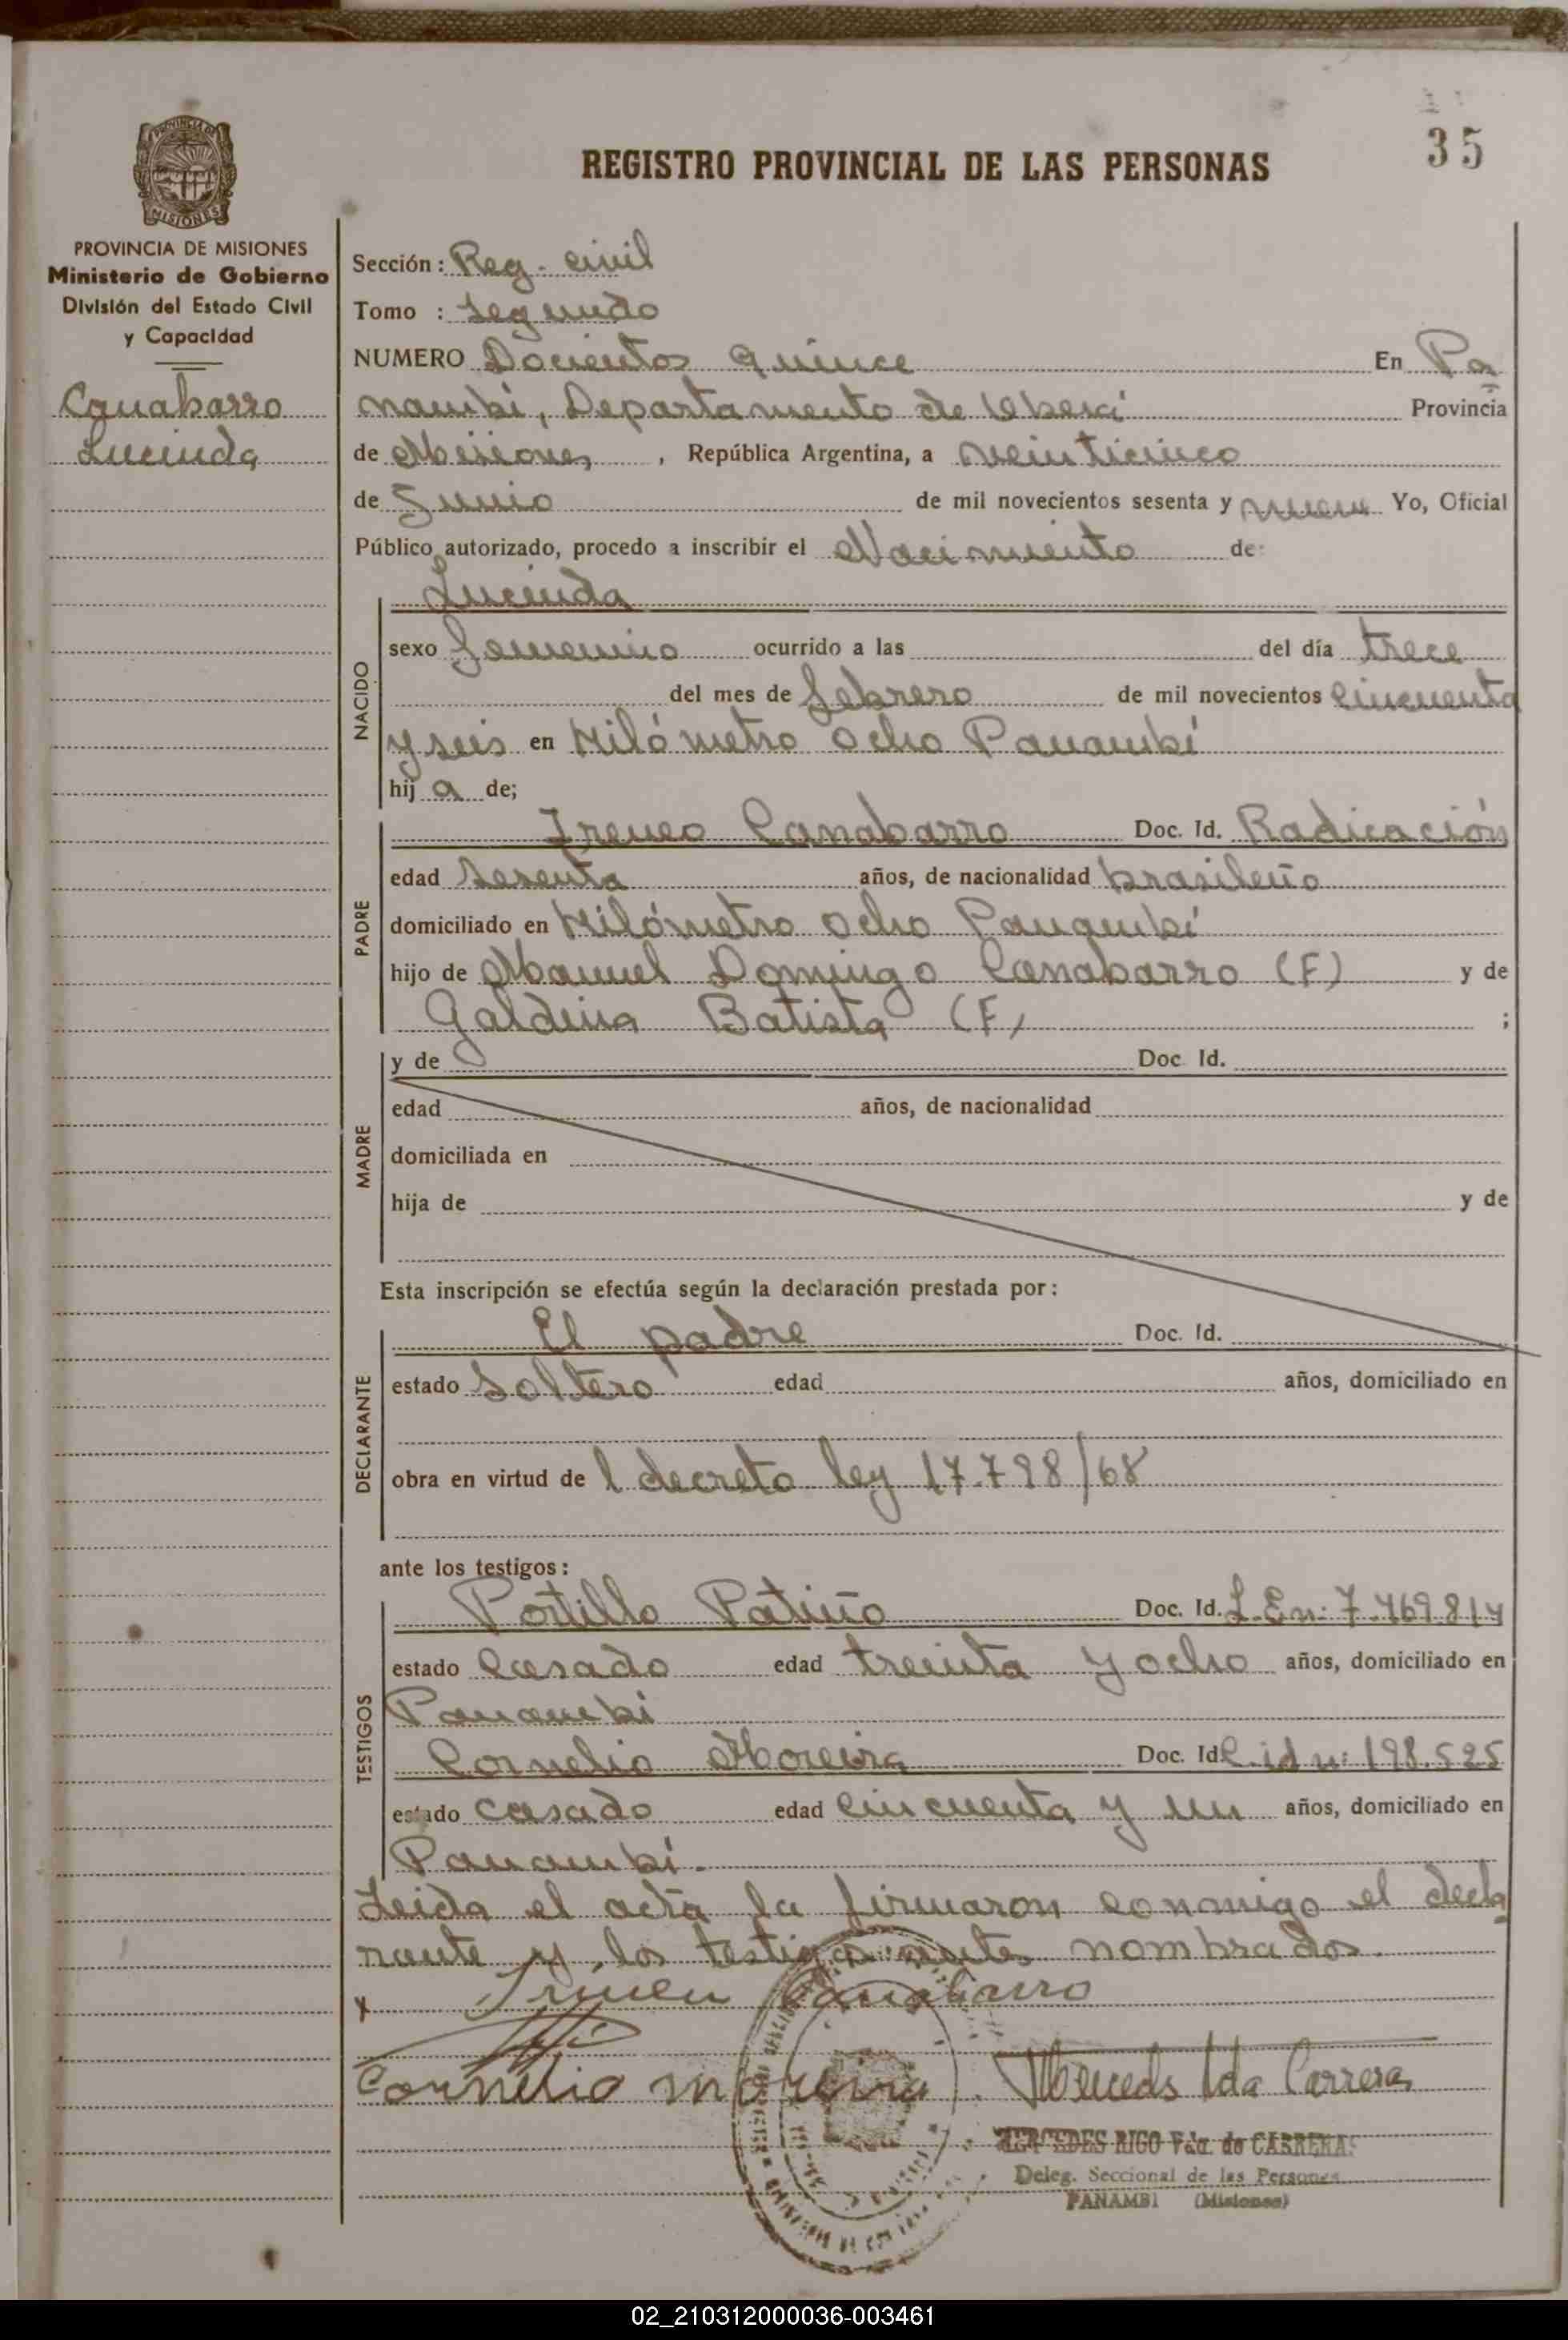 35
REGISTRO PROVINCIAL DE LAS PERSONAS
PROVINCIA DE MISIONES
Ministerio de Gobierno
División del Estado Civil
y Capacidad
Canabarro
Lucinda
Sección: Reg. civil
Tomo : Segundo
NUMERO Docientos quince En Pa
nambí, Departamento de Oberá Provincia
de Misiones, República Argentina, a veinticinco
de Junio de mil novecientos sesenta y nueve Yo, Oficial
Público autorizado, procedo a inscribir el Nacimiento de:
NACIDO
Lucinda
sexo femenino ocurrido a las del día trece
del mes de febrero de mil novecientos cincuenta
y seis en Kilómetro ocho Panambí
hij a de;
PADRE
Ireneo Canabarro Doc. Id. Radicación
edad sesenta años, de nacionalidad brasileño
domiciliado en Kilómetro ocho Panambí
hijo de Manuel Domingo Canabarro (F) y de
Galdina Batista (F) ;
MADRE
y de Doc. Id.
edad años, de nacionalidad
domiciliada en
hija de y de
Esta inscripción se efectúa según la declaración prestada por:
DECLARANTE
El padre Doc. Id.
estado Soltero edad años, domiciliado en
obra en virtud de l decreto ley 17.798/68
ante los testigos:
TESTIGOS
Portillo Patiño Doc. Id. L.En: 7.469.814
estado casado edad treinta y ocho años, domiciliado en
Panambi
Cornelio Moreira Doc. Id C.id n: 198.525
estado casado edad cincuenta y un años, domiciliado en
Panambí.
Leida el acta la firmaron conmigo el decla
rante y los testigos antes nombrados.
x Irineu Canabarro
Cornelio Moreira
MERCEDES RIGO Vda. de CABRERAS
Deleg. Seccional de las Personas
PANAMBI (Misiones)
02_210312000036-003461